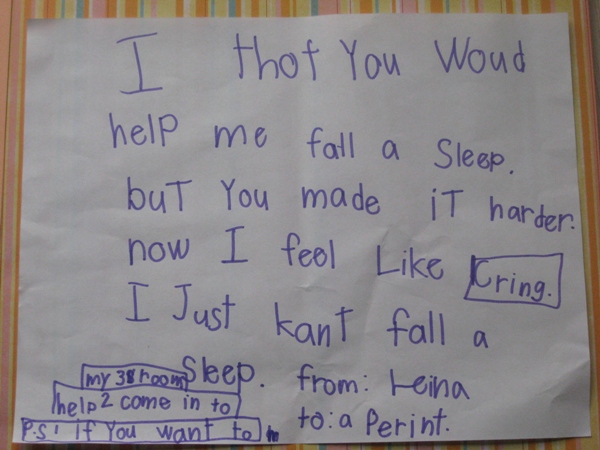 I thot You Woud
help me fall a Sleep.
but You made iT harder.
now I feel Like Cring.
I Just kant fall a
Sleep. from: Leina
to: a Perint.
P.S: if You want to
help 2 come in to
my 3 room